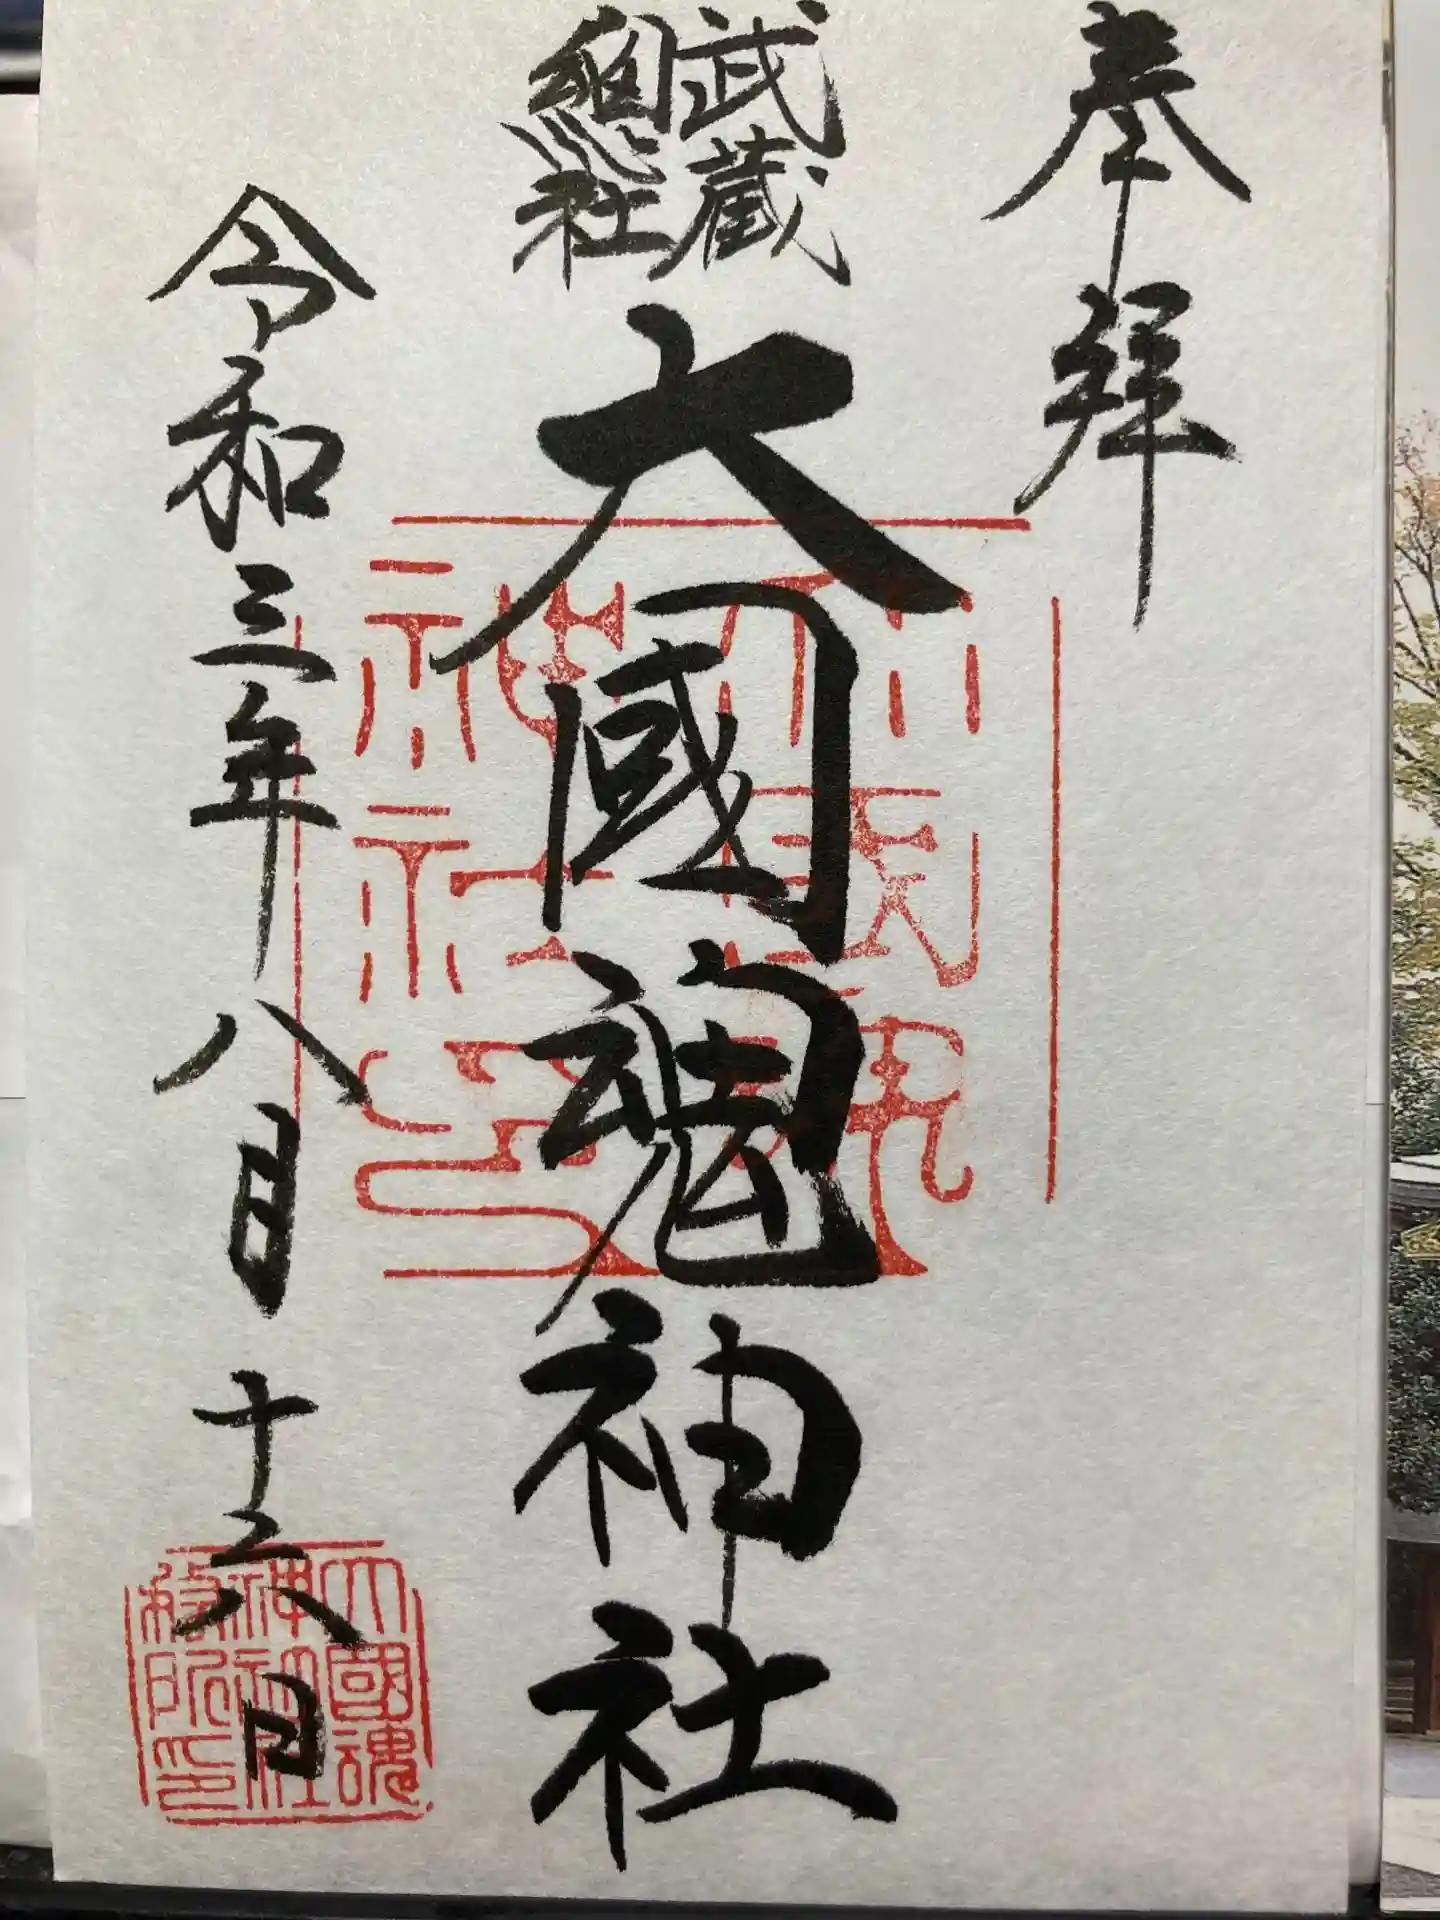 奉拝
武蔵
總社
大國魂神社
令和三年八月十六日
大國魂
神社印
大國魂
神社社
務所印